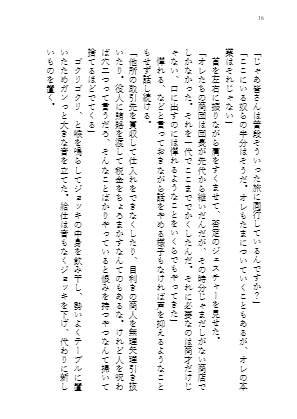 16
「じゃあ皆さんは普段そういった旅に同行しているんですか?」
「ここにいる奴らの半分はそうだ。オレもたまについていくこともあるが、オレの本
業はそれじゃない」
首を左右に振りながら肩をすくませて、否定のジェスチャーを見せた。
「オレたちの商団は団長が先代から継いだんだが、その時分じゃまだしがない商店で
しかなかった。それを一代でここまででかくしたんだ。それに必要なのは商才だけじ
ゃない、口に出すのには憚れるようなことをいくらでもやってきた」
憚れる、などと言っておきながら話をやめる様子もなければ声を抑えるようなこと
もせず話し続ける。
「他所の取引先を買収して仕入れをできなくしたり、目利きの商人を無理矢理引き抜
いたり。役人に賄賂を渡して税金をちょろまかすなんてのもあるな。けれど人を呪わ
ば穴二つって言うだろ、そんなことばかりやっていると恨みを持つやつなんて掃いて
捨てるほどでてくる」
ゴクリゴクリ、と喉を鳴らしてジョッキの中身を飲み干し、勢いよくテーブルに置
いたためガンっと大きな音を立てた。給仕は音もなくジョッキを下げ、代わりに新し
いものを置く。